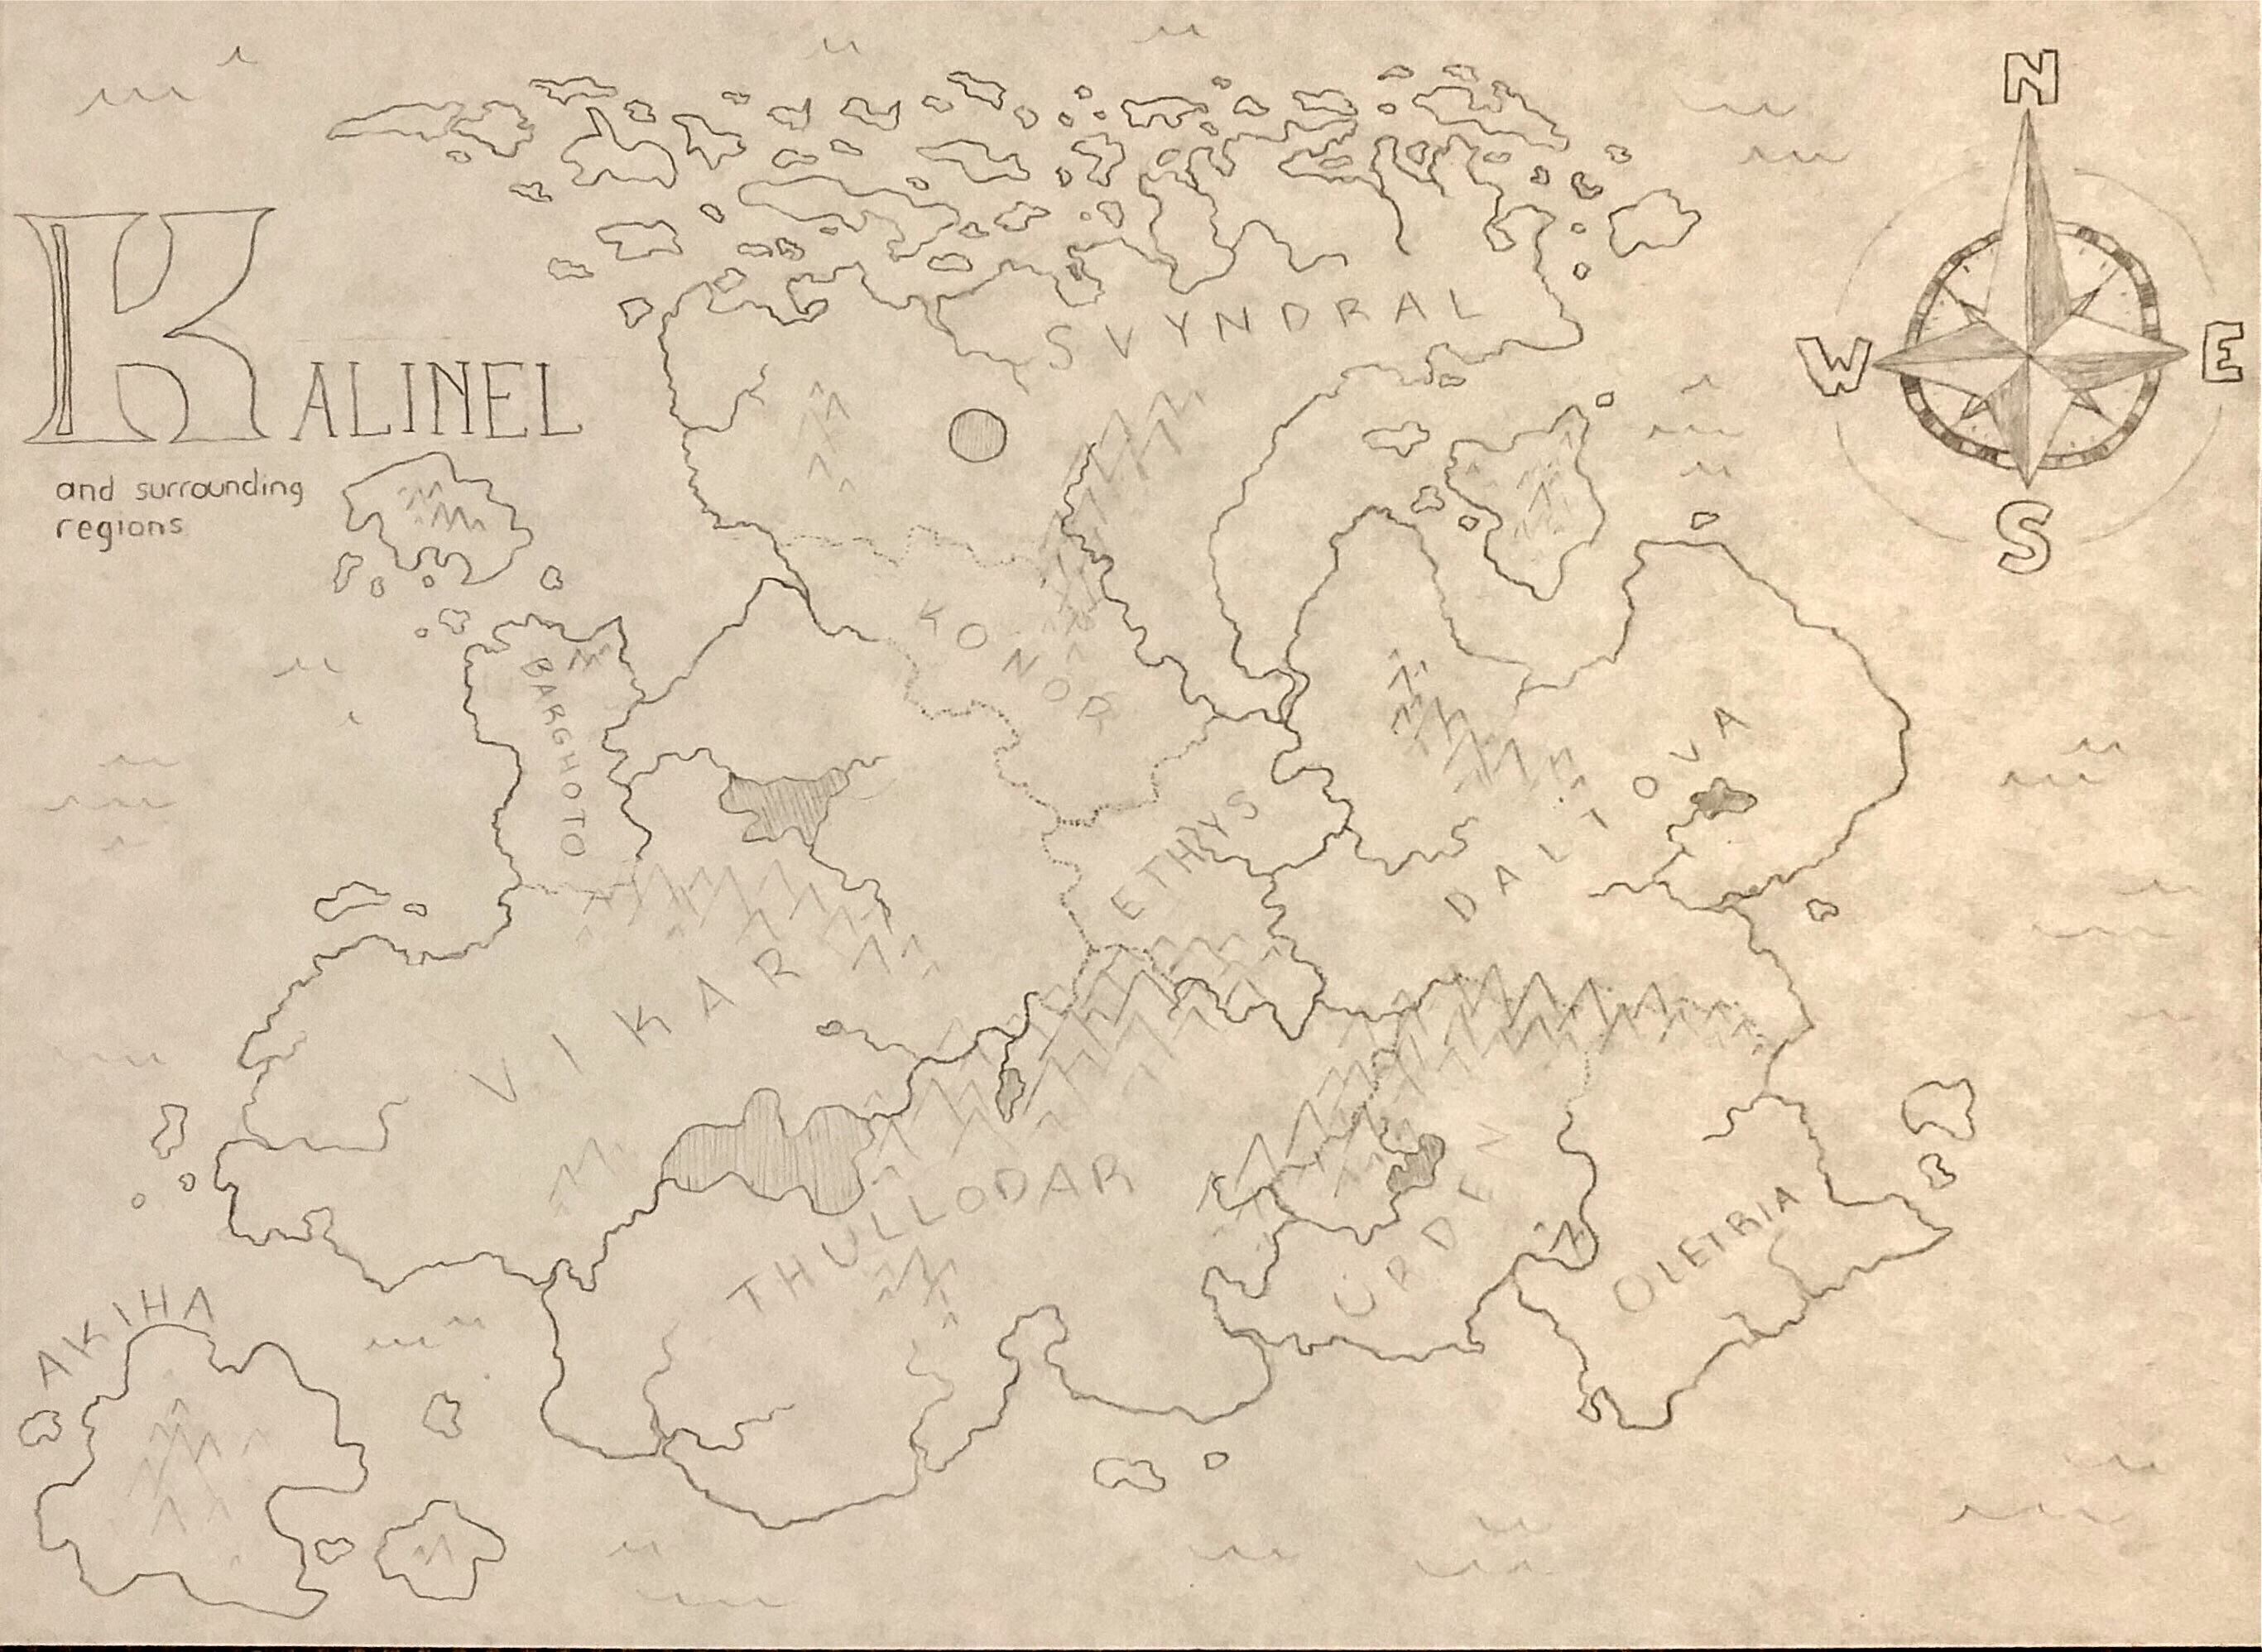 KALINEL
and surrounding
regions
N
W
E
S
SVYNDRAL
KONOR
BARGHOTO
ETHRYS
DALTOVA
VIKAR
THULLODAR
URDEN
OLETRIA
AKIHA